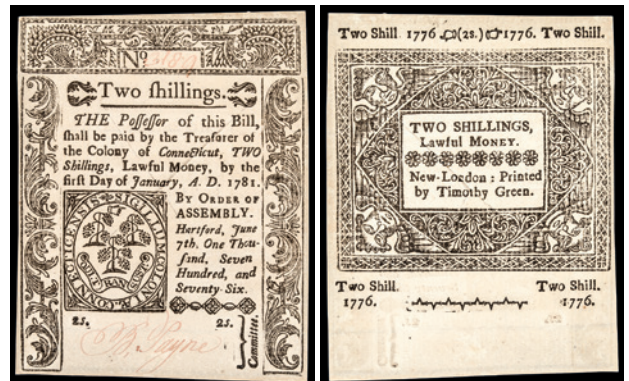 No
Two ſhillings.
THE Poſſeſſor of this Bill,
ſhall be paid by the Treaſurer of
the Colony of Connecticut, TWO
Shillings, Lawful Money, by the
firſt Day of January, A. D. 1781.
By Order of
ASSEMBLY.
Hertford, June
7th. One Thou-
ſand, Seven
Hundred, and
Seventy-Six.
SIGILLUM
2s. 2s.
B. Payne
Committee.
Two Shill. 1776 (2s.) 1776. Two Shill.
TWO SHILLINGS,
Lawful Money.
New-London: Printed
by Timothy Green.
Two Shill. Two Shill.
1776. 1776.